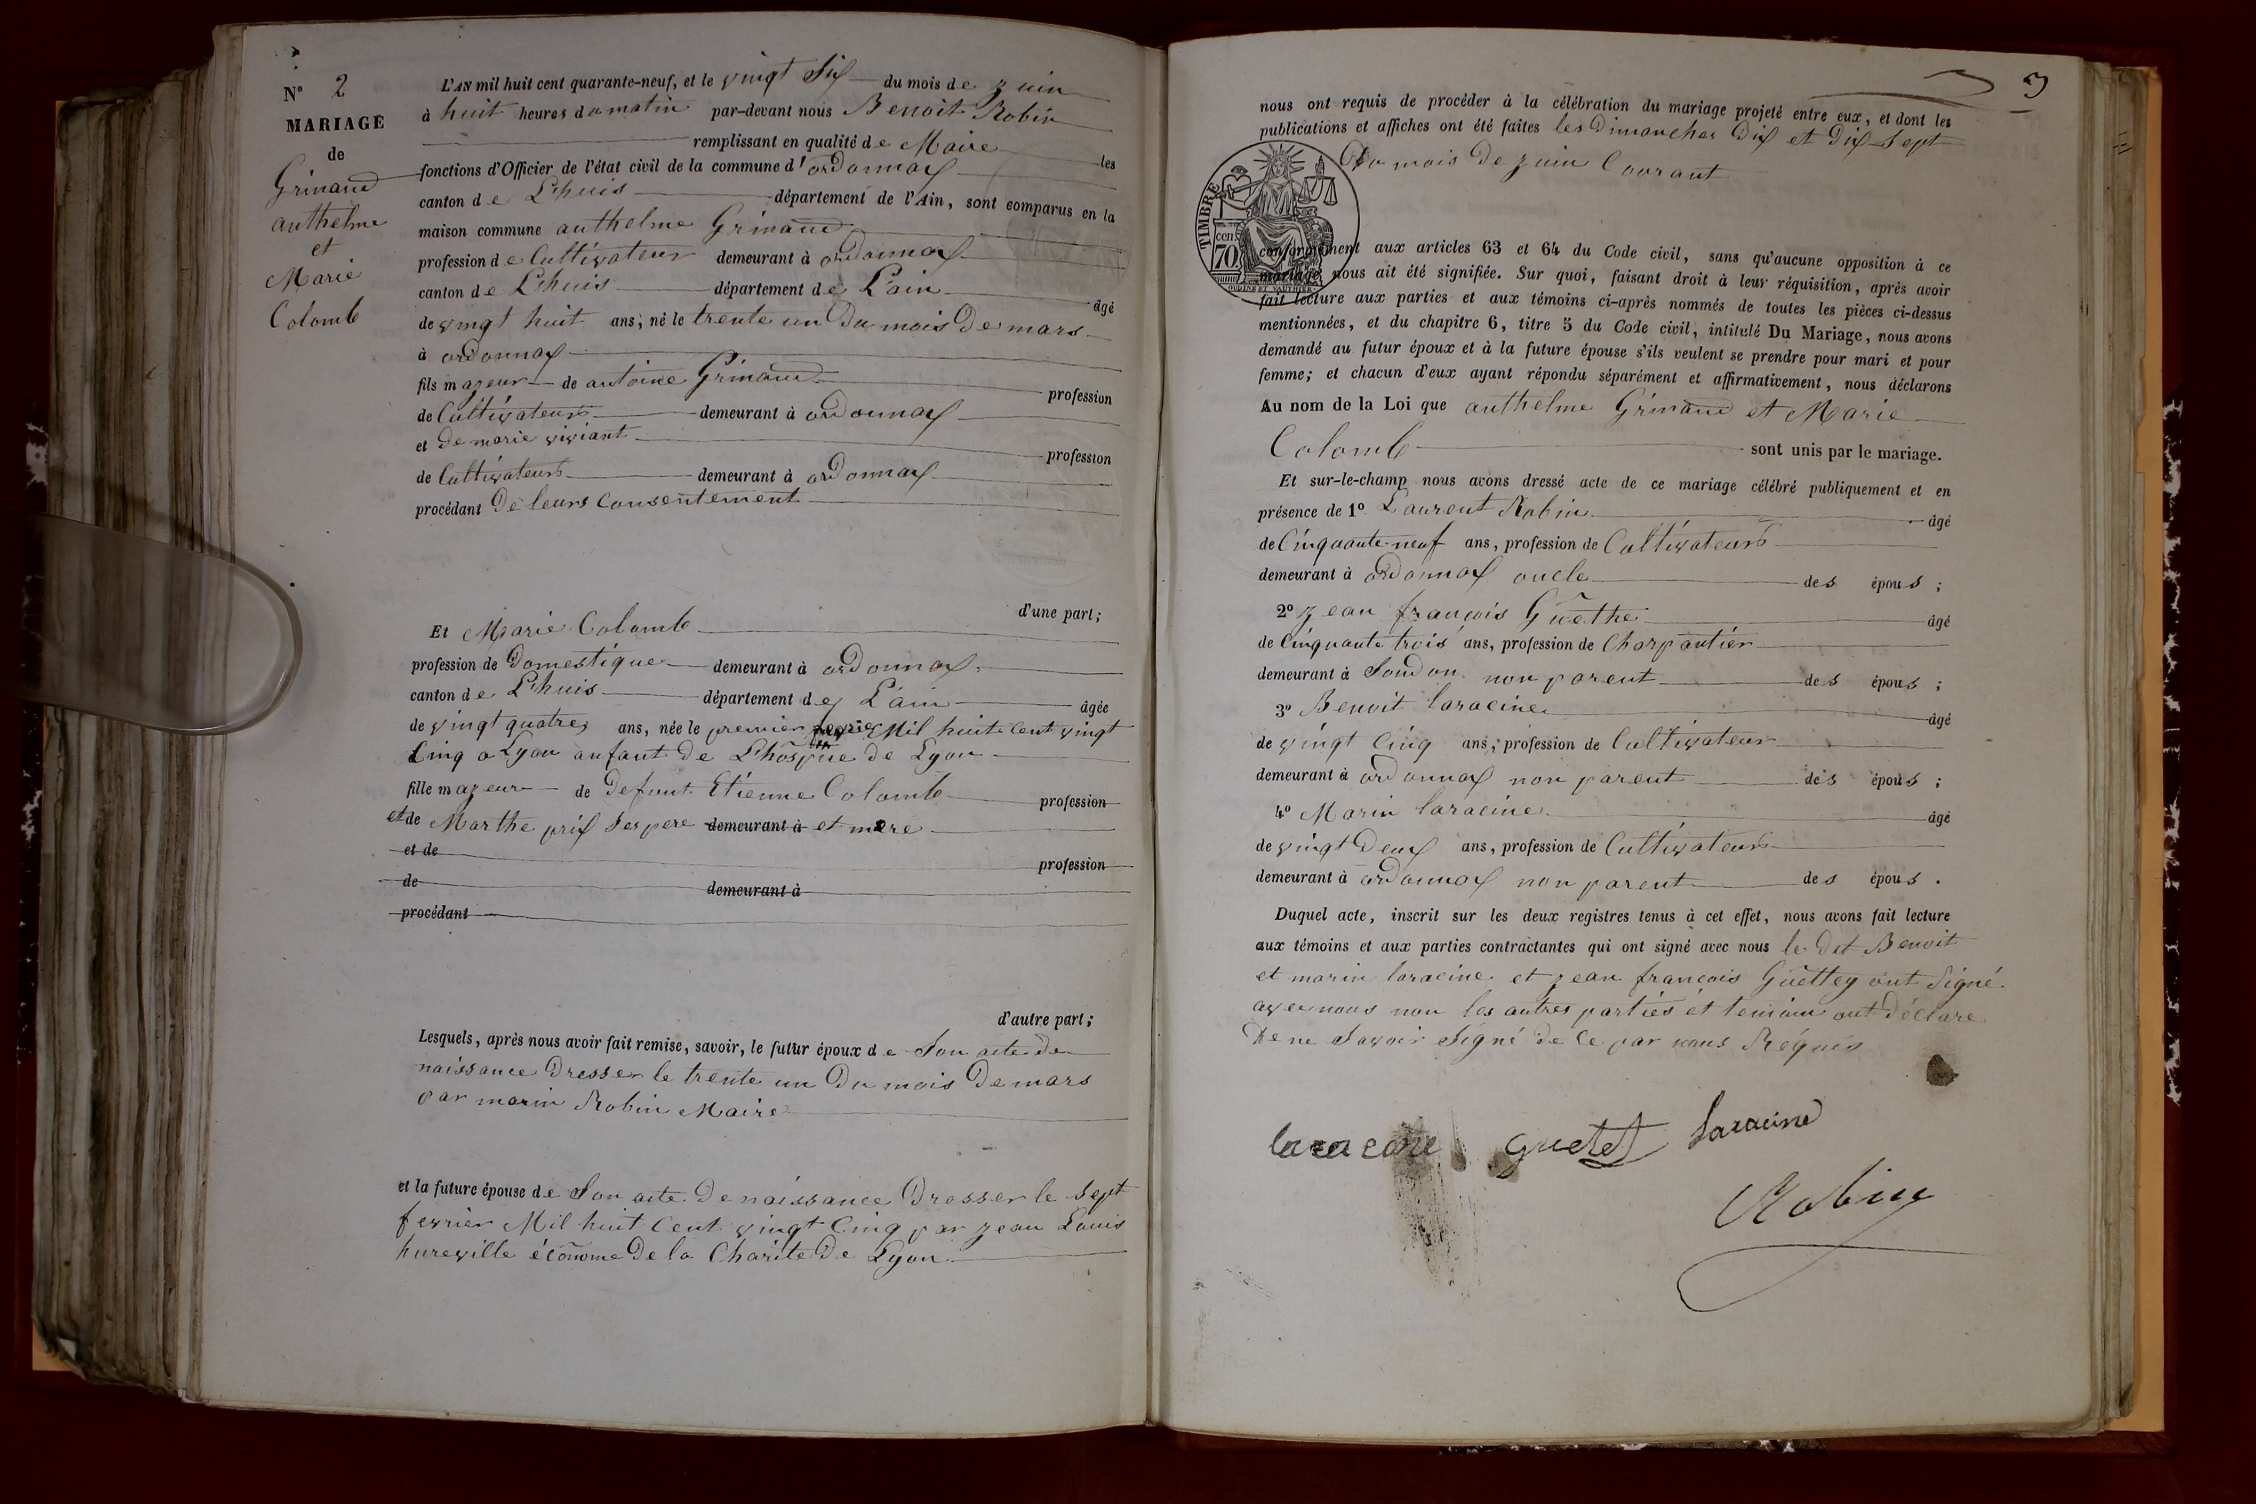 N° 2
MARIAGE
de
Grinand
anthelme
et
Marie
Colomb
L'AN mil huit cent quarante-neuf, et le vingt Six du mois de juin
à huit heures du matin par-devant nous Benoit Robin
remplissant en qualité de Maire les
fonctions d'Officier de l'état civil de la commune d'ordonnax
canton de L'huis département de l'Ain, sont comparus en la
maison commune anthelme Grinand
profession de Cultivateur demeurant à ordonnax
canton de L'huis département de L'ain âgé
de vingt huit ans; né le trente un Du mois De mars
à ordonnax
fils majeur de antoine Grinand profession
de Cultivateurs demeurant à ordonnax
et de marie viviant profession
de Cultivateurs demeurant à ordonnax
procédant De leurs Consentement
d'une part;
Et Marie Colomb
profession de Domestique demeurant à ordonnax
canton de L'huis département de L'ain âgée
de vingt quatre ans, née le premier Mil huit Cent vingt
Cinq a Lyon anfant de L'hospice de Lyon
fille majeur de Defunt Etienne Colomb profession
et de Marthe prix Ses pere demeurant à et mere
et de profession
de demeurant à
procédant
d'autre part;
Lesquels, après nous avoir fait remise, savoir, le futur époux de Son acte de
naissance Dresser le trente un Du mois De mars
par marin Robin Maire
et la future épouse de Son acte De naissance Dresser le Sept
fevrier Mil huit Cent vingt Cinq par jean Louis
hureville économe De la Charite De Lyon
3
nous ont requis de procéder à la célébration du mariage projeté entre eux, et dont les
publications et affiches ont été faites les Dimanches Dix et Dix Sept
Du mois De juin Courant
TIMBRE
cen.
70
conformément aux articles 63 et 64 du Code civil, sans qu'aucune opposition à ce
mariage nous ait été signifiée. Sur quoi, faisant droit à leur réquisition, après avoir
fait lecture aux parties et aux témoins ci-après nommés de toutes les pièces ci-dessus
mentionnées, et du chapitre 6, titre 5 du Code civil, intitulé Du Mariage, nous avons
demandé au futur époux et à la future épouse s'ils veulent se prendre pour mari et pour
femme; et chacun d'eux ayant répondu séparément et affirmativement, nous déclarons
Au nom de la Loi que anthelme Grinand et Marie
Colomb sont unis par le mariage.
Et sur-le-champ nous avons dressé acte de ce mariage célébré publiquement et en
présence de 1° Laurent Robin âgé
de Cinquante neuf ans, profession de Cultivateurs
demeurant à ordonnax oncle des épous;
2° jean françois Guethe âgé
de Cinquante trois ans, profession de Charpantier
demeurant à Soudon non parent des épous;
3° Benoit laracine âgé
de vingt Cinq ans, profession de Cultivateur
demeurant à ordonnax non parent des épous;
4° Marin laracine âgé
de vingt Deux ans, profession de Cultivateurs
demeurant à ordonnax non parent des épous.
Duquel acte, inscrit sur les deux registres tenus à cet effet, nous avons fait lecture
aux témoins et aux parties contractantes qui ont signé avec nous le dit Benoit
et marin laracine et jean françois Guettey ont Signé
avec nous non les autres parties et temoin ont Déclare
De ne Savoir Signé de Ce par nous Réquis
laracine guetet laracine
Robin